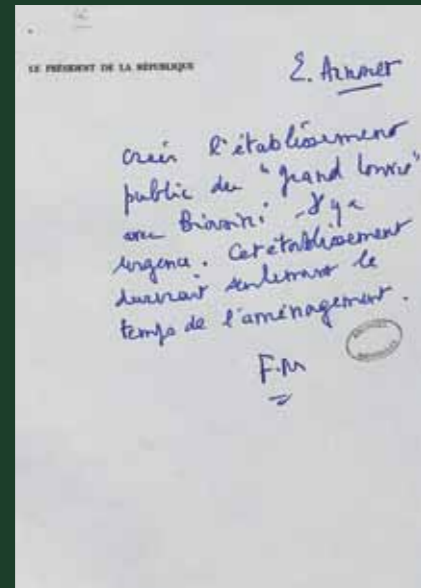 LE PRÉSIDENT DE LA RÉPUBLIQUE
créer l'établissement
public du "grand Louvre"
avec Biasini. Il y a
urgence. Cet établissement
durerait seulement le
temps de l'aménagement.
F.M